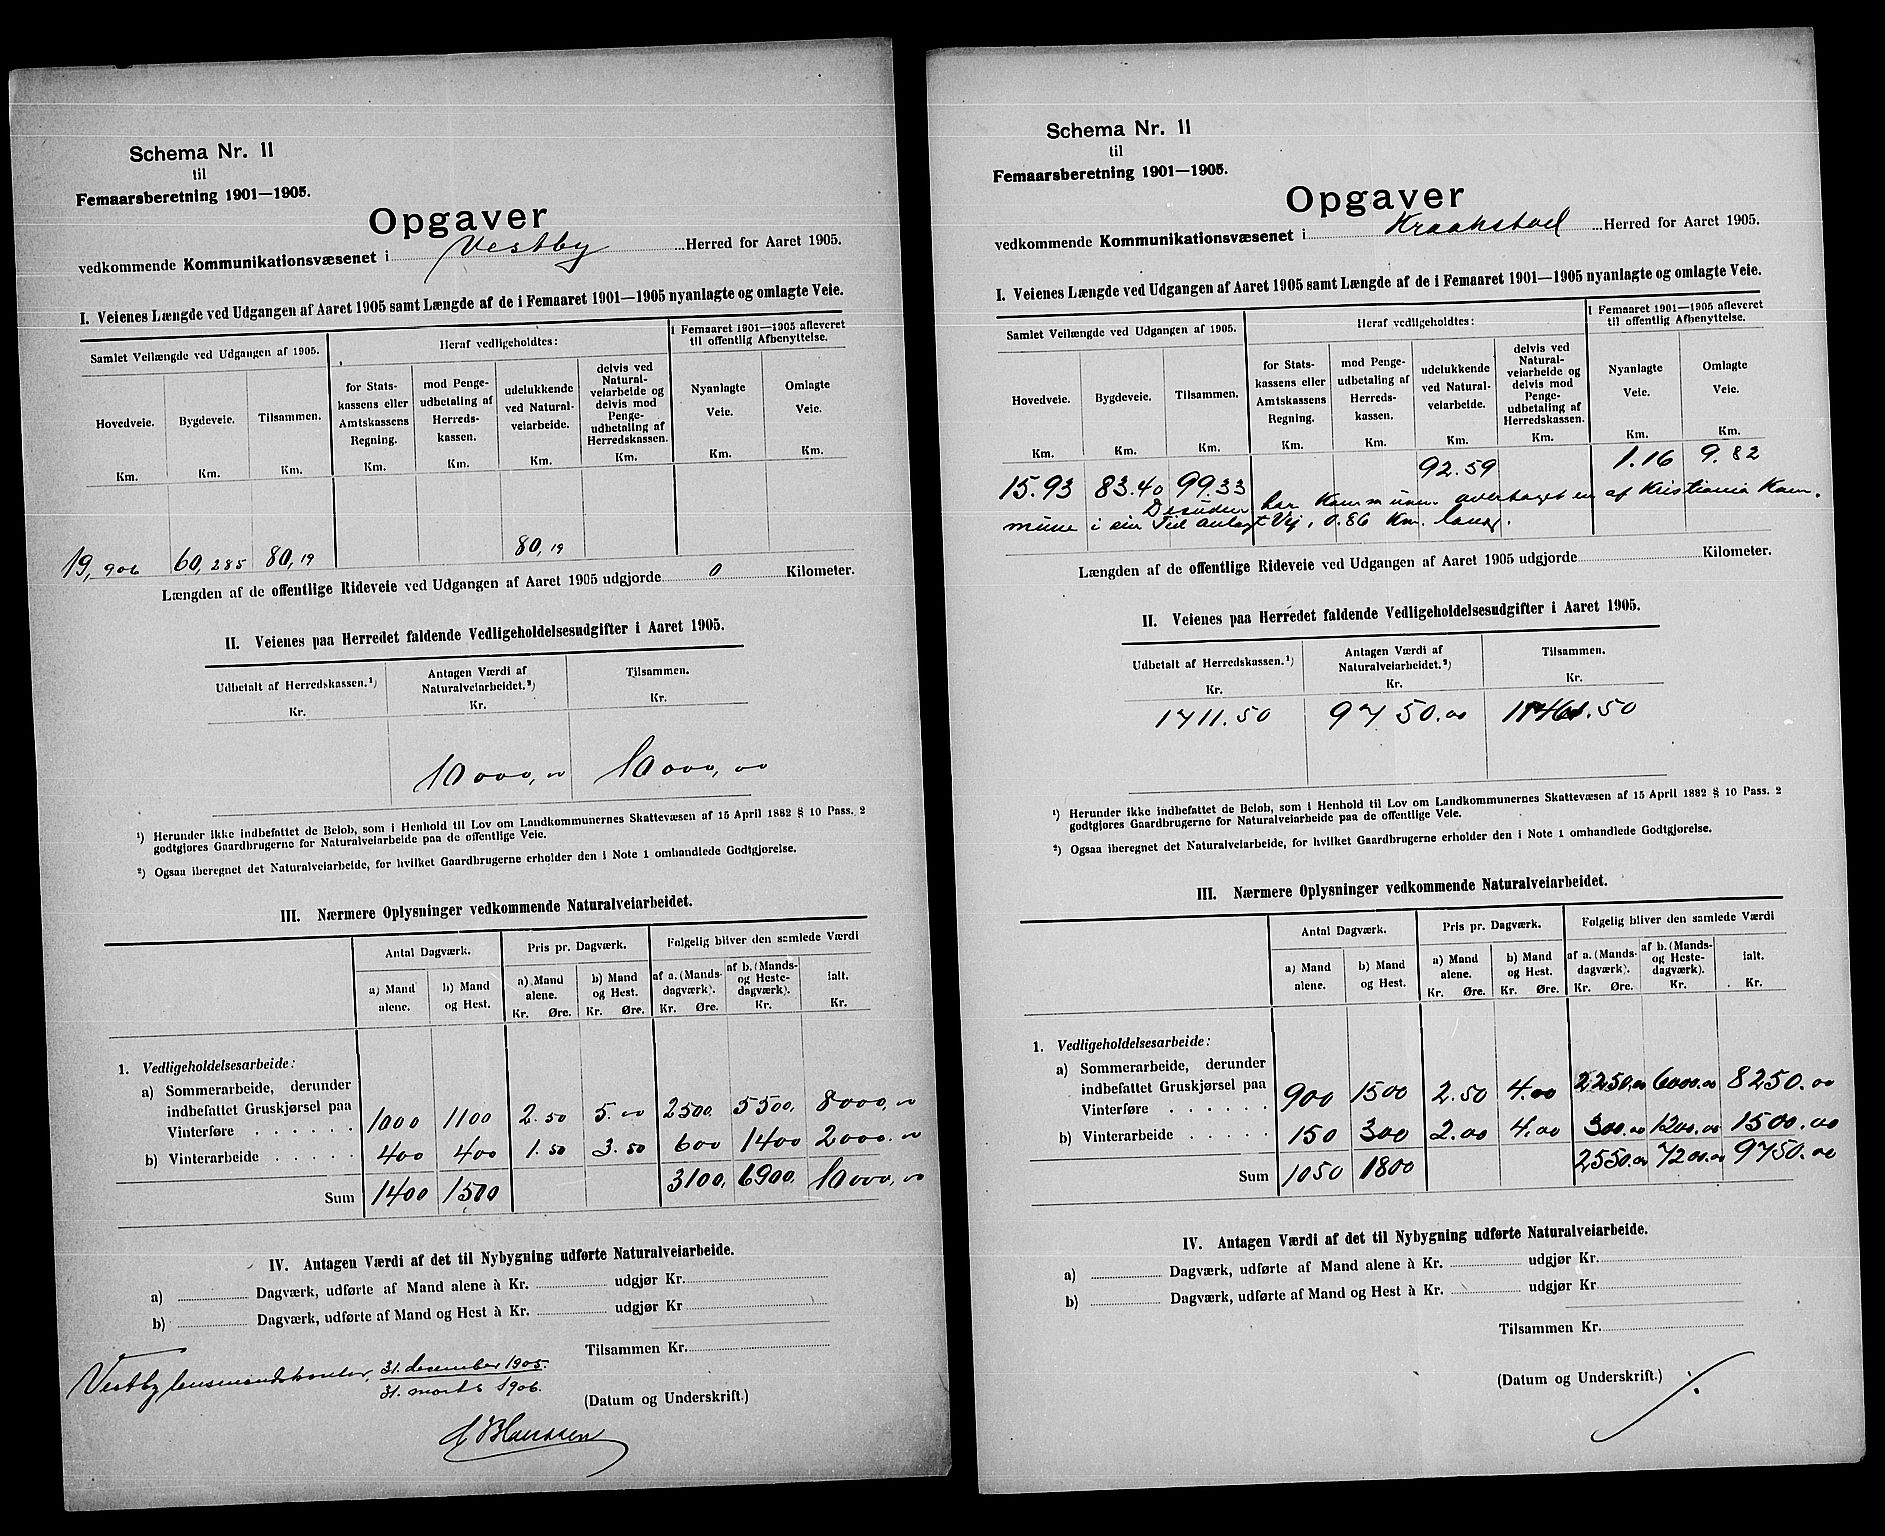 Schema Nr. II
til
Femaarsberetning 1901—1905.
Opgaver
vedkommende Kommunikationsvæsenet i Vestby Herred for Aaret 1905.
I. Veienes Længde ved Udgangen af Aaret 1905 samt Længde af de i Femaaret 1901—1905 nyanlagte og omlagte Veie.
Samlet Veilængde ved Udgangen af 1905.
Heraf vedligeholdtes:
I Femaaret 1901—1905 afleveret
til offentlig Afbenyttelse.
Hovedveie.
Bygdeveie.
Tilsammen.
for Stats-
kassens eller
Amtskassens
Regning.
mod Penge-
udbetaling af
Herreds-
kassen.
udelukkende
ved Natural-
veiarbeide.
delvis ved
Natural-
veiarbeide og
delvis mod
Penge-
udbetaling af
Herredskassen.
Nyanlagte
Veie.
Omlagte
Veie.
Km. Km. Km. Km. Km. Km. Km. Km. Km.
19,906 60,285 80,19 80,19
Længden af de offentlige Rideveie ved Udgangen af Aaret 1905 udgjorde 0 Kilometer.
II. Veienes paa Herredet faldende Vedligeholdelsesudgifter i Aaret 1905.
Udbetalt af Herredskassen.¹)
Kr.
Antagen Værdi af
Naturalveiarbeidet.²)
Kr.
Tilsammen.
Kr.
10000,00 10000,00
¹) Herunder ikke indbefattet de Beløb, som i Henhold til Lov om Landkommunernes Skattevæsen af 15 April 1882 § 10 Pass. 2
godtgjøres Gaardbrugerne for Naturalveiarbeide paa de offentlige Veie.
²) Ogsaa iberegnet det Naturalveiarbeide, for hvilket Gaardbrugerne erholder den i Note 1 omhandlede Godtgjørelse.
III. Nærmere Oplysninger vedkommende Naturalveiarbeidet.
Antal Dagværk.
Pris pr. Dagværk.
Følgelig bliver den samlede Værdi
a) Mand
alene.
b) Mand
og Hest.
a) Mand
alene.
Kr. Øre.
b) Mand
og Hest.
Kr. Øre.
af a. (Mands-
dagværk).
Kr. Øre.
af b. (Mands-
og Heste-
dagværk).
Kr.
ialt.
Kr.
1. Vedligeholdelsesarbeide:
a) Sommerarbeide, derunder
indbefattet Gruskjørsel paa
Vinterføre . . . . . . 1000 1100 2.50 5.00 2500. 5500. 8000,00
b) Vinterarbeide . . . . . 400 400 1.50 3.50 600 1400 2000.00
Sum 1400 1500 3100. 6900. 10000,00
IV. Antagen Værdi af det til Nybygning udførte Naturalveiarbeide.
a) Dagværk, udførte af Mand alene à Kr. udgjør Kr.
b) Dagværk, udførte af Mand og Hest à Kr. udgjør Kr
Tilsammen Kr.
Vestby lensmandskontor, 31. december 1905.
31. marts 1906.
(Datum og Underskrift.)
Schema Nr. II
til
Femaarsberetning 1901—1905.
Opgaver
vedkommende Kommunikationsvæsenet i Kraakstad Herred for Aaret 1905.
I. Veienes Længde ved Udgangen af Aaret 1905 samt Længde af de i Femaaret 1901—1905 nyanlagte og omlagte Veie.
Samlet Veilængde ved Udgangen af 1905.
Heraf vedligeholdtes:
I Femaaret 1901—1905 afleveret
til offentlig Afbenyttelse.
Hovedveie.
Bygdeveie.
Tilsammen.
for Stats-
kassens eller
Amtskassens
Regning.
mod Penge-
udbetaling af
Herreds-
kassen.
udelukkende
ved Natural-
veiarbeide.
delvis ved
Natural-
veiarbeide og
delvis mod
Penge-
udbetaling af
Herredskassen.
Nyanlagte
Veie.
Omlagte
Veie.
Km. Km. Km. Km. Km. Km. Km. Km. Km.
15.93 83.40 99.33 92.59 1.16 9.82
Desuden har Kommunen overtaget en af Kristiania Kom-
mune i sin Tid anlagt Vej, 0.86 Km. lang.
Længden af de offentlige Rideveie ved Udgangen af Aaret 1905 udgjorde Kilometer.
II. Veienes paa Herredet faldende Vedligeholdelsesudgifter i Aaret 1905.
Udbetalt af Herredskassen.¹)
Kr.
Antagen Værdi af
Naturalveiarbeidet.²)
Kr.
Tilsammen.
Kr.
1711.50 9750.00 11461.50
¹) Herunder ikke indbefattet de Beløb, som i Henhold til Lov om Landkommunernes Skattevæsen af 15 April 1882 § 10 Pass. 2
godtgjøres Gaardbrugerne for Naturalveiarbeide paa de offentlige Veie.
²) Ogsaa iberegnet det Naturalveiarbeide, for hvilket Gaardbrugerne erholder den i Note 1 omhandlede Godtgjørelse.
III. Nærmere Oplysninger vedkommende Naturalveiarbeidet.
Antal Dagværk.
Pris pr. Dagværk.
Følgelig bliver den samlede Værdi
a) Mand
alene.
b) Mand
og Hest.
a) Mand
alene.
Kr. Øre.
b) Mand
og Hest.
Kr. Øre.
af a. (Mands-
dagværk).
Kr. Øre.
af b. (Mands-
og Heste-
dagværk).
Kr.
ialt.
Kr.
1. Vedligeholdelsesarbeide:
a) Sommerarbeide, derunder
indbefattet Gruskjørsel paa
Vinterføre . . . . . . 900 1500 2.50 4.00 2250.00 6000.00 8250.00
b) Vinterarbeide . . . . . 150 300 2.00 4.00 300.00 1200.00 1500.00
Sum 1050 1800 2550.00 7200.00 9750.00
IV. Antagen Værdi af det til Nybygning udførte Naturalveiarbeide.
a) Dagværk, udførte af Mand alene à Kr. udgjør Kr.
b) Dagværk, udførte af Mand og Hest à Kr. udgjør Kr.
Tilsammen Kr.
(Datum og Underskrift.)